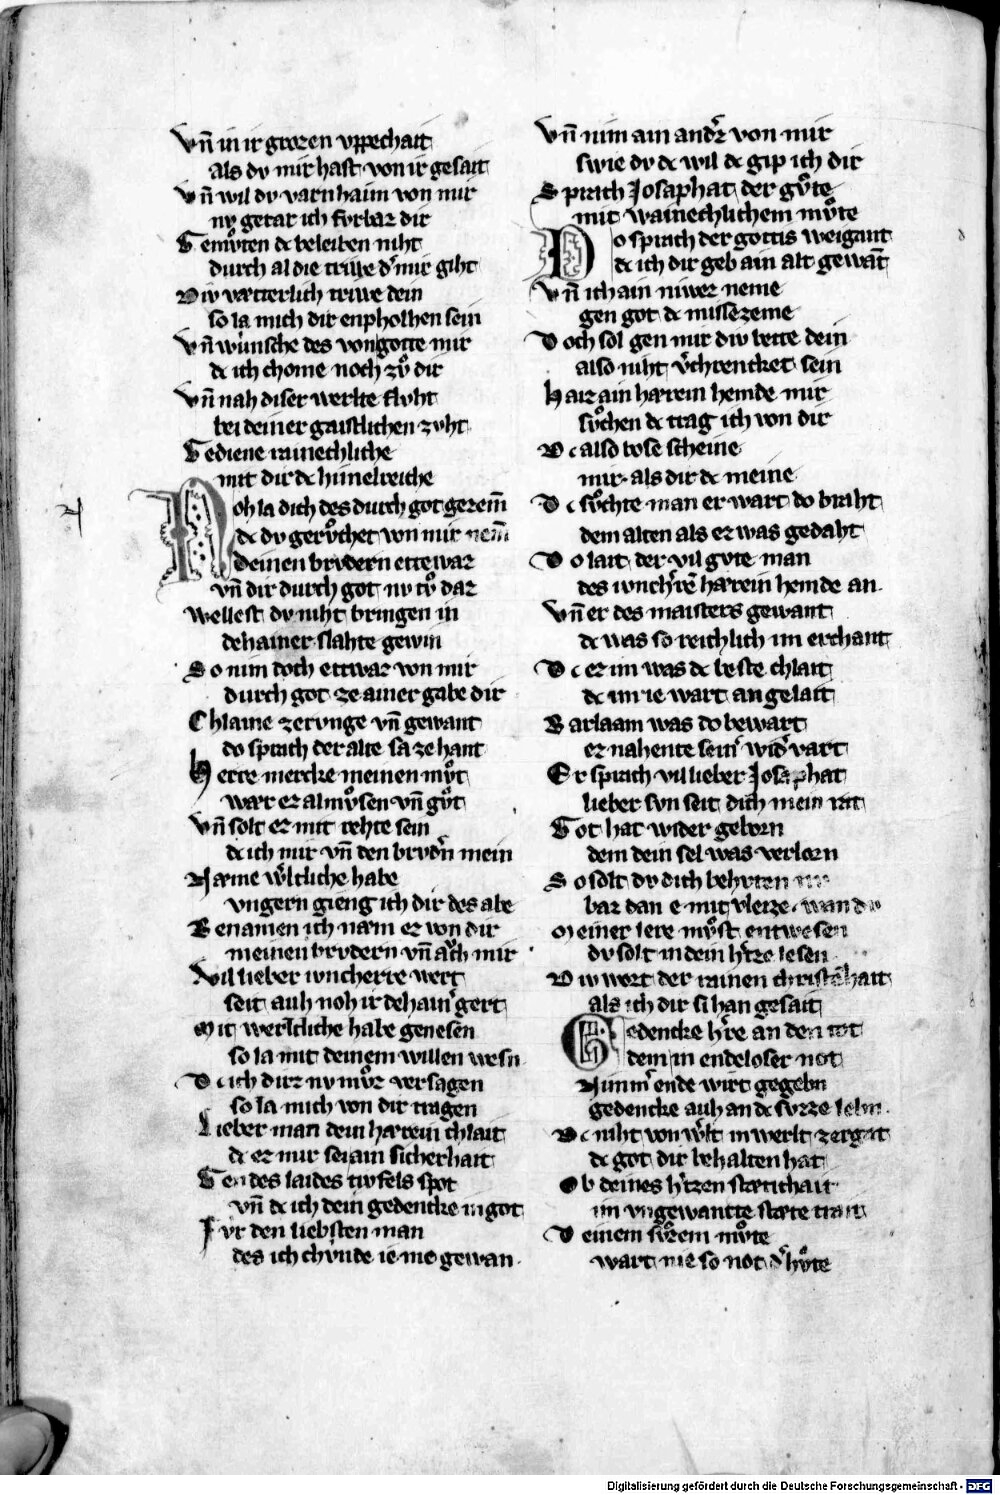 Vn̄ in ir grozen vppechait
als dv mir hast von ir gesait
Vn̄ wil dv varn haim von mir
nv getar ich fvrbaz dir
Gemvͦten dc beleiben niht
durch al die triwe d᾽ mir giht
Div væterlich triwe dein
so la mich dir enpholhen sein
Vn̄ wünsche des von gotte mir
dc ich chome noch zvͦ dir
Vn̄ nah diser werlte flvht
bei deiner gaistlichen zvht
Gediene rainechliche
mit dir dc himelreiche
Noh la dich des durch got gezem̄
dc dv gervͦchest von mir nem̄
deinen brvdern ettewaz
vn̄ dir durch got nv tvͦ daz
Wellest dv niht bringen in
dehainer slahte gewin
So nim doch ettwaz von mir
durch got ze ainer gabe dir
Chlaine zervnge vn̄ gewant
do sprach der alte sa ze hant
Herre mercke meinen mvͦt
wær ez almvͦsen vn̄ gvͦt
Vn̄ solt ez mit rehte sein
dc ich mir vn̄ den brvdn̄ mein
Næme w᾽ltliche habe
vngern gieng ich dir des abe
Benamen ich næm ez von dir
meinen brvdern vn̄ aͮch mir
Vil lieber ivncherre wert
seit auh noh ir dehain᾽ gert
Mit werltliche habe genesen
so la mit deinem willen wesn
Dc ich dirz nv mvͦz versagen
so la mich von dir tragen
Lieber man dein hærein chlait
dc ez mir sei ain sicherhait
Gen des laides tivfels spot
vn̄ dc ich dein gedencke in got
Fvr den liebsten man
des ich chvnde ie me gewan
Vn̄ nim ain andᷣz von mir
swie dv dc wil dc gip ich dir
Sprach Josaphat der gvͦte
mit wainechlichem mvͦte
Do sprach der gottis weigant
dc ich dir geb ain alt gewāt
Vn̄ ich ain niwez neme
gen got dc missezeme
Doch sol gen mir div bette dein
also niht v᾽chrencket sein
Haiz ain hærein hemde mir
svͦchen dc trag ich von dir
Dc also bose scheine
mir als dir dc meine
Dc svͦchte man ez wart do braht
dem alten als ez was gedaht
Do lait der vil gvte man
des ivnch᾽rē hærein hemde an
Vn̄ er des maisters gewant
dc was so reichlich im erchant
Dc ez im was dc beste chlait
dc im ie wart an gelait
Barlaam was do bewart
ez nahente sein᾽ wid᾽vart
Er sprach vil lieber Josaphat
lieber svn seit dich mein rat
Got hat wider geborn
dem dein sel was verlorn
So solt dv dich behvten
baz dan e mit vleize wan dv
Meiner lere mvͦst entwesen
dv solt in dein h᾽tze lesen
Div wort der rainen christēhait
als ich dir si han gesait
Gedencke h᾽re an den tot
dem in endeloser not
Nimm᾽ ende wirt gegebn
gedencke auh an dc svzze lebn
Dc niht von w᾽lt in werlt zergat
dc got dir behalten hat
Ob deines h᾽tzen stætichait
im vngewantte stæte trait
Deinem svͦzem mvͦte
wart nie so not d᾽ hvͦte
Digitalisierung gefördert durch die Deutsche Forschungsgemeinschaft - DFG